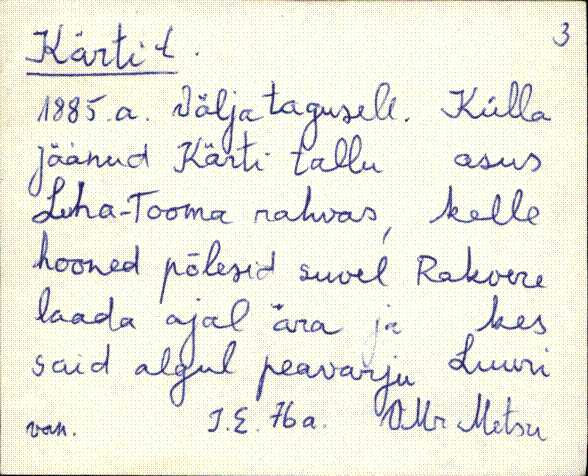 3
Kärti t.
1885.a. Väljatagusele. Külla
jäänud Kärti tallu asus
Luha-Tooma rahvas, kelle
hooned põlesid suvel Rakvere
laada ajal ära ja kes
said algul peavarju Luuri
van. I.E. 76 a. Metsu